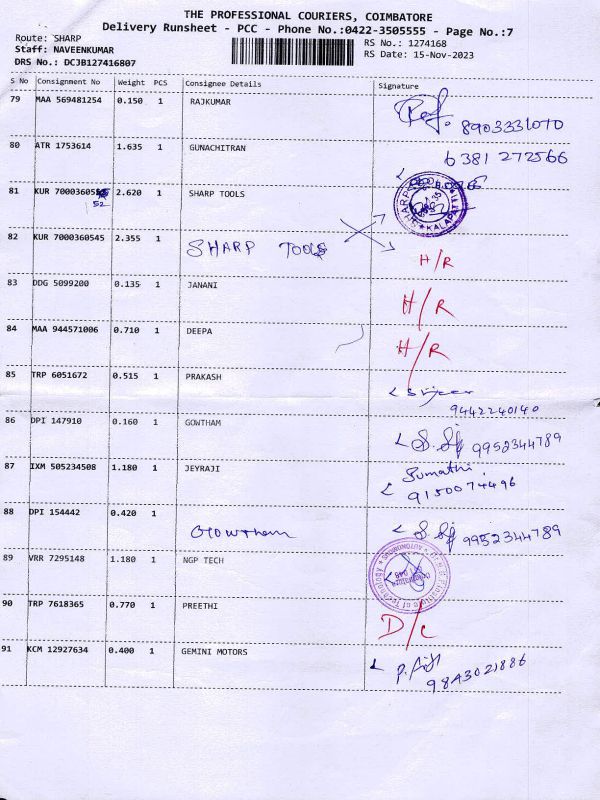 THE PROFESSIONAL COURIERS, COIMBATORE
Delivery Runsheet - PCC - Phone No.:0422-3505555 - Page No.:7
Route: SHARP
RS No.: 1274168
Staff: NAVEENKUMAR
RS Date: 15-Nov-2023
DRS No.: DCJB127416807
S No Consignment No Weight PCS Consignee Details Signature
79 MAA 569481254 0.150 1 RAJKUMAR
8903331070
80 ATR 1753614 1.635 1 GUNACHITRAN 6381 272566
81 KUR 7000360555 2.620 1 SHARP TOOLS
52
82 KUR 7000360545 2.355 1 SHARP TOOLS H/R
83 DDG 5099200 0.135 1 JANANI H/R
84 MAA 944571006 0.710 1 DEEPA H/R
85 TRP 6051672 0.515 1 PRAKASH
9442240140
86 DPI 147910 0.160 1 GOWTHAM 9952344789
87 IXM 505234508 1.180 1 JEYRAJI Sumathi.
9150074496
88 DPI 154442 0.420 1 Gowtham 9952344789
89 VRR 7295148 1.180 1 NGP TECH
90 TRP 7618365 0.770 1 PREETHI D/C
91 KCM 12927634 0.400 1 GEMINI MOTORS
9843021886